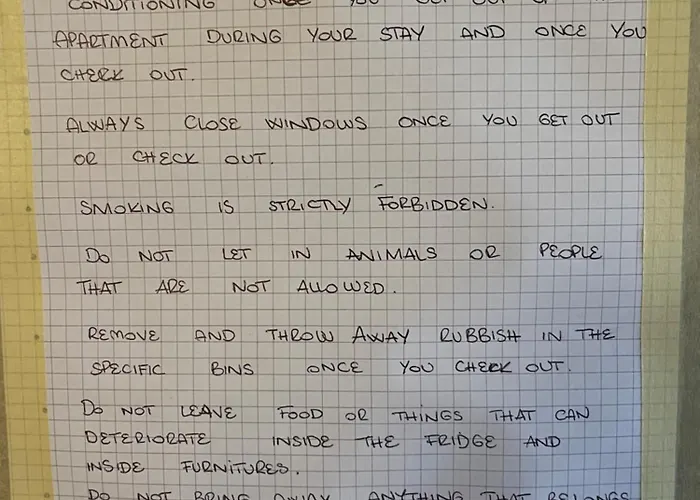 CONDITIONING ONCE YOU GET OUT OF
APARTMENT DURING YOUR STAY AND ONCE YOU
CHECK OUT.
ALWAYS CLOSE WINDOWS ONCE YOU GET OUT
OR CHECK OUT.
SMOKING IS STRICTLY FORBIDDEN.
DO NOT LET IN ANIMALS OR PEOPLE
THAT ARE NOT ALLOWED.
REMOVE AND THROW AWAY RUBBISH IN THE
SPECIFIC BINS ONCE YOU CHECK OUT.
DO NOT LEAVE FOOD OR THINGS THAT CAN
DETERIORATE INSIDE THE FRIDGE AND
INSIDE FURNITURES.
DO NOT BRING AWAY ANYTHING THAT BELONGS